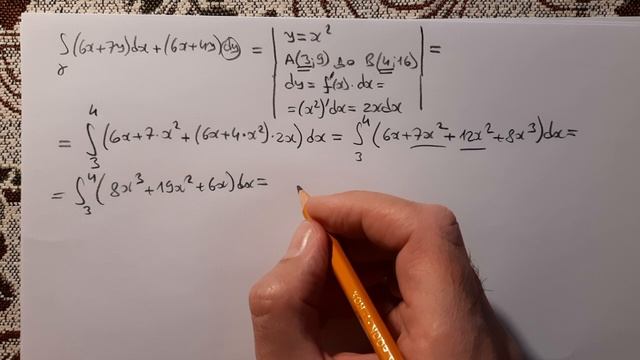 ∫γ (6x+7y)dx+(6x+4y)dy = | y=x² | =
A(3;9) до B(4;16)
dy= f'(x)·dx=
=(x²)'dx=2xdx
= ∫₃⁴ (6x+7·x²+(6x+4·x²)·2x)dx= ∫₃⁴ (6x+7x²+12x²+8x³)dx=
= ∫₃⁴ (8x³+19x²+6x)dx=